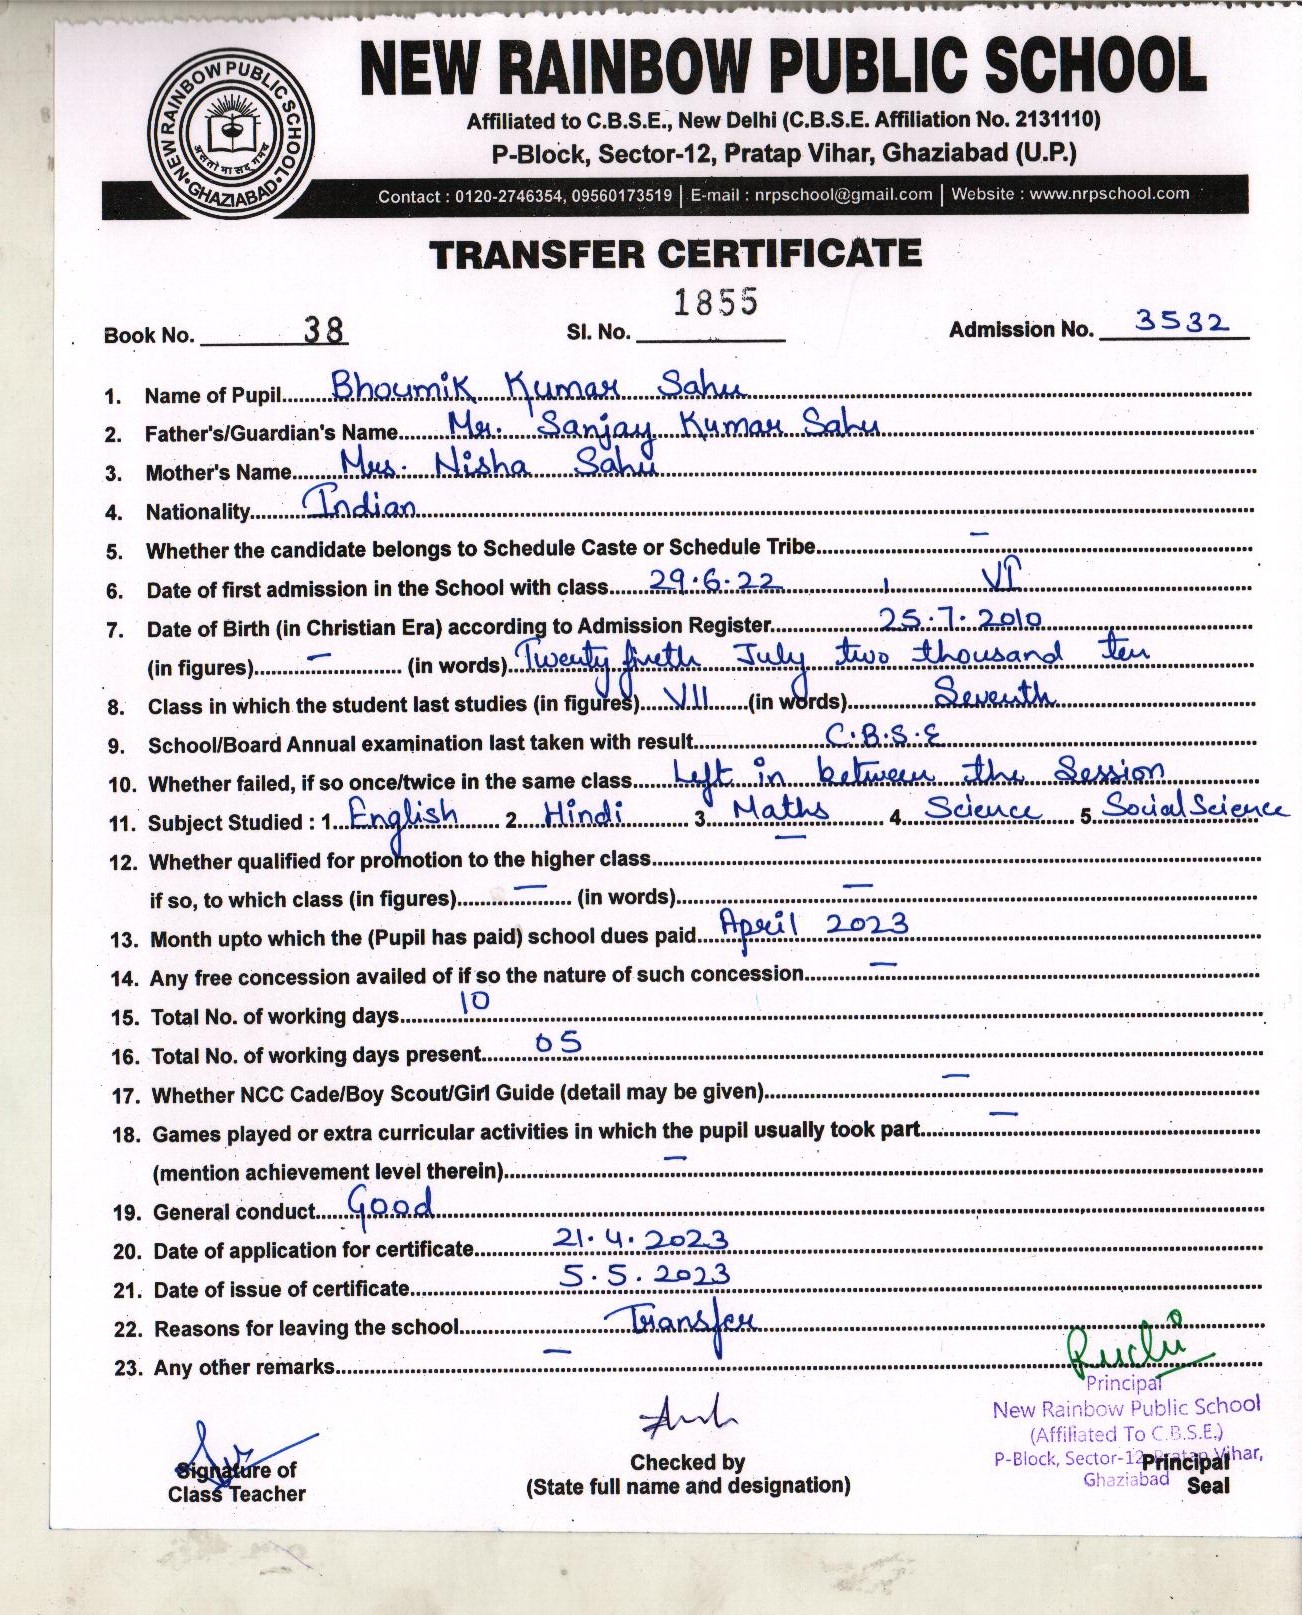 NEW RAINBOW PUBLIC SCHOOL
NEW RAINBOW PUBLIC SCHOOL • GHAZIABAD •
असतो मा सद् गमय
Affiliated to C.B.S.E., New Delhi (C.B.S.E. Affiliation No. 2131110)
P-Block, Sector-12, Pratap Vihar, Ghaziabad (U.P.)
Contact : 0120-2746354, 09560173519 | E-mail : nrpschool@gmail.com | Website : www.nrpschool.com
TRANSFER CERTIFICATE
Book No. 38 Sl. No. 1855 Admission No. 3532
1. Name of Pupil Bhoumik Kumar Sahu
2. Father's/Guardian's Name Mr. Sanjay Kumar Sahu
3. Mother's Name Mrs. Nisha Sahu
4. Nationality Indian
5. Whether the candidate belongs to Schedule Caste or Schedule Tribe –
6. Date of first admission in the School with class 29.6.22 , VI
7. Date of Birth (in Christian Era) according to Admission Register 25.7.2010
(in figures) – (in words) Twenty fiveth July two thousand ten
8. Class in which the student last studies (in figures) VII (in words) Seventh
9. School/Board Annual examination last taken with result C.B.S.E
10. Whether failed, if so once/twice in the same class Left in between the Session
11. Subject Studied : 1. English 2. Hindi 3. Maths 4. Science 5. Social Science
12. Whether qualified for promotion to the higher class –
if so, to which class (in figures) – (in words) –
13. Month upto which the (Pupil has paid) school dues paid April 2023
14. Any free concession availed of if so the nature of such concession –
15. Total No. of working days 10
16. Total No. of working days present 05
17. Whether NCC Cade/Boy Scout/Girl Guide (detail may be given) –
18. Games played or extra curricular activities in which the pupil usually took part –
(mention achievement level therein) –
19. General conduct Good
20. Date of application for certificate 21.4.2023
21. Date of issue of certificate 5.5.2023
22. Reasons for leaving the school Transfer
23. Any other remarks –
Ruchi
Principal
New Rainbow Public School
(Affiliated To C.B.S.E.)
P-Block, Sector-12, Pratap Vihar,
Ghaziabad
Signature of
Class Teacher
Checked by
(State full name and designation)
Principal
Seal